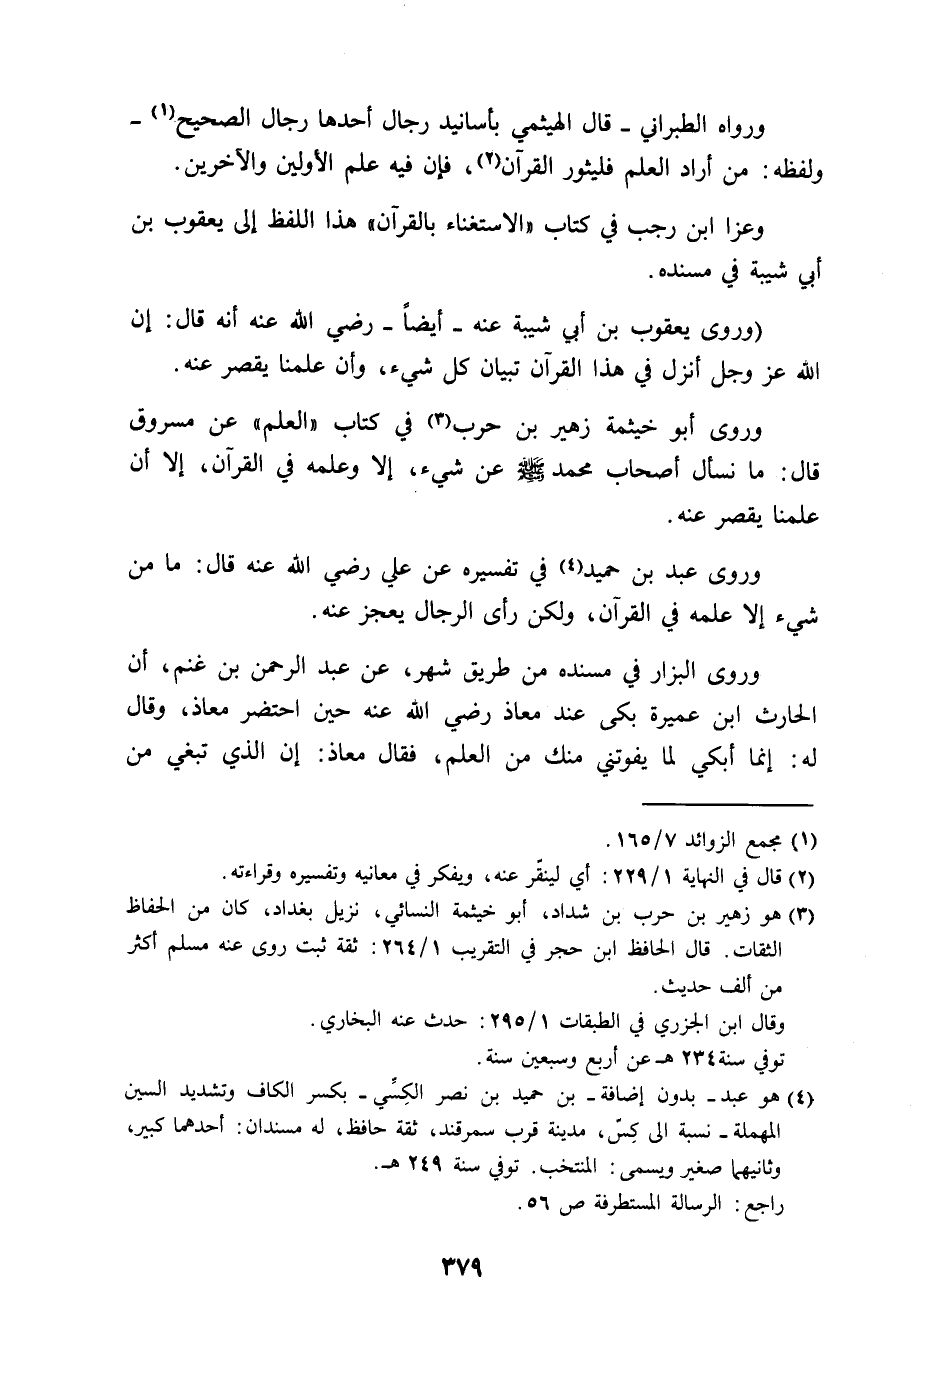 ورواه الطبراني - قال الهيثمي بأسانيد رجال أحدها رجال الصحيح(١) -
ولفظه: من أراد العلم فليثور القرآن(٢)، فإن فيه علم الأولين والآخرين.
وعزا ابن رجب في كتاب «الاستغناء بالقرآن» هذا اللفظ إلى يعقوب بن
أبي شيبة في مسنده.
(وروى يعقوب بن أبي شيبة عنه - أيضاً - رضي الله عنه أنه قال: إن
الله عز وجل أنزل في هذا القرآن تبيان كل شيء، وأن علمنا يقصر عنه.
وروى أبو خيثمة زهير بن حرب(٣) في كتاب «العلم» عن مسروق
قال: ما نسأل أصحاب محمد ﷺ عن شيء، إلا وعلمه في القرآن، إلا أن
علمنا يقصر عنه.
وروى عبد بن حميد(٤) في تفسيره عن علي رضي الله عنه قال: ما من
شيء إلا علمه في القرآن، ولكن رأى الرجال يعجز عنه.
وروى البزار في مسنده من طريق شهر، عن عبد الرحمن بن غنم، أن
الحارث ابن عميرة بكى عند معاذ رضي الله عنه حين احتضر معاذ، وقال
له: إنما أبكي لما يفوتني منك من العلم، فقال معاذ: إن الذي تبغي من
(١) مجمع الزوائد ١٦٥/٧.
(٢) قال في النهاية ٢٢٩/١: أي لينقّر عنه، ويفكر في معانيه وتفسيره وقراءته.
(٣) هو زهير بن حرب بن شداد، أبو خيثمة النسائي، نزيل بغداد، كان من الحفاظ
الثقات. قال الحافظ ابن حجر في التقريب ٢٦٤/١: ثقة ثبت روى عنه مسلم أكثر
من ألف حديث.
وقال ابن الجزري في الطبقات ٢٩٥/١: حدث عنه البخاري.
توفي سنة ٢٣٤ هـ عن أربع وسبعين سنة.
(٤) هو عبد - بدون إضافة - بن حميد بن نصر الكِسِّي - بكسر الكاف وتشديد السين
المهملة - نسبة الى كِسّ، مدينة قرب سمرقند، ثقة حافظ، له مسندان: أحدهما كبير،
وثانيهما صغير ويسمى: المنتخب. توفي سنة ٢٤٩ هـ.
راجع: الرسالة المستطرفة ص ٥٦.
٣٧٩